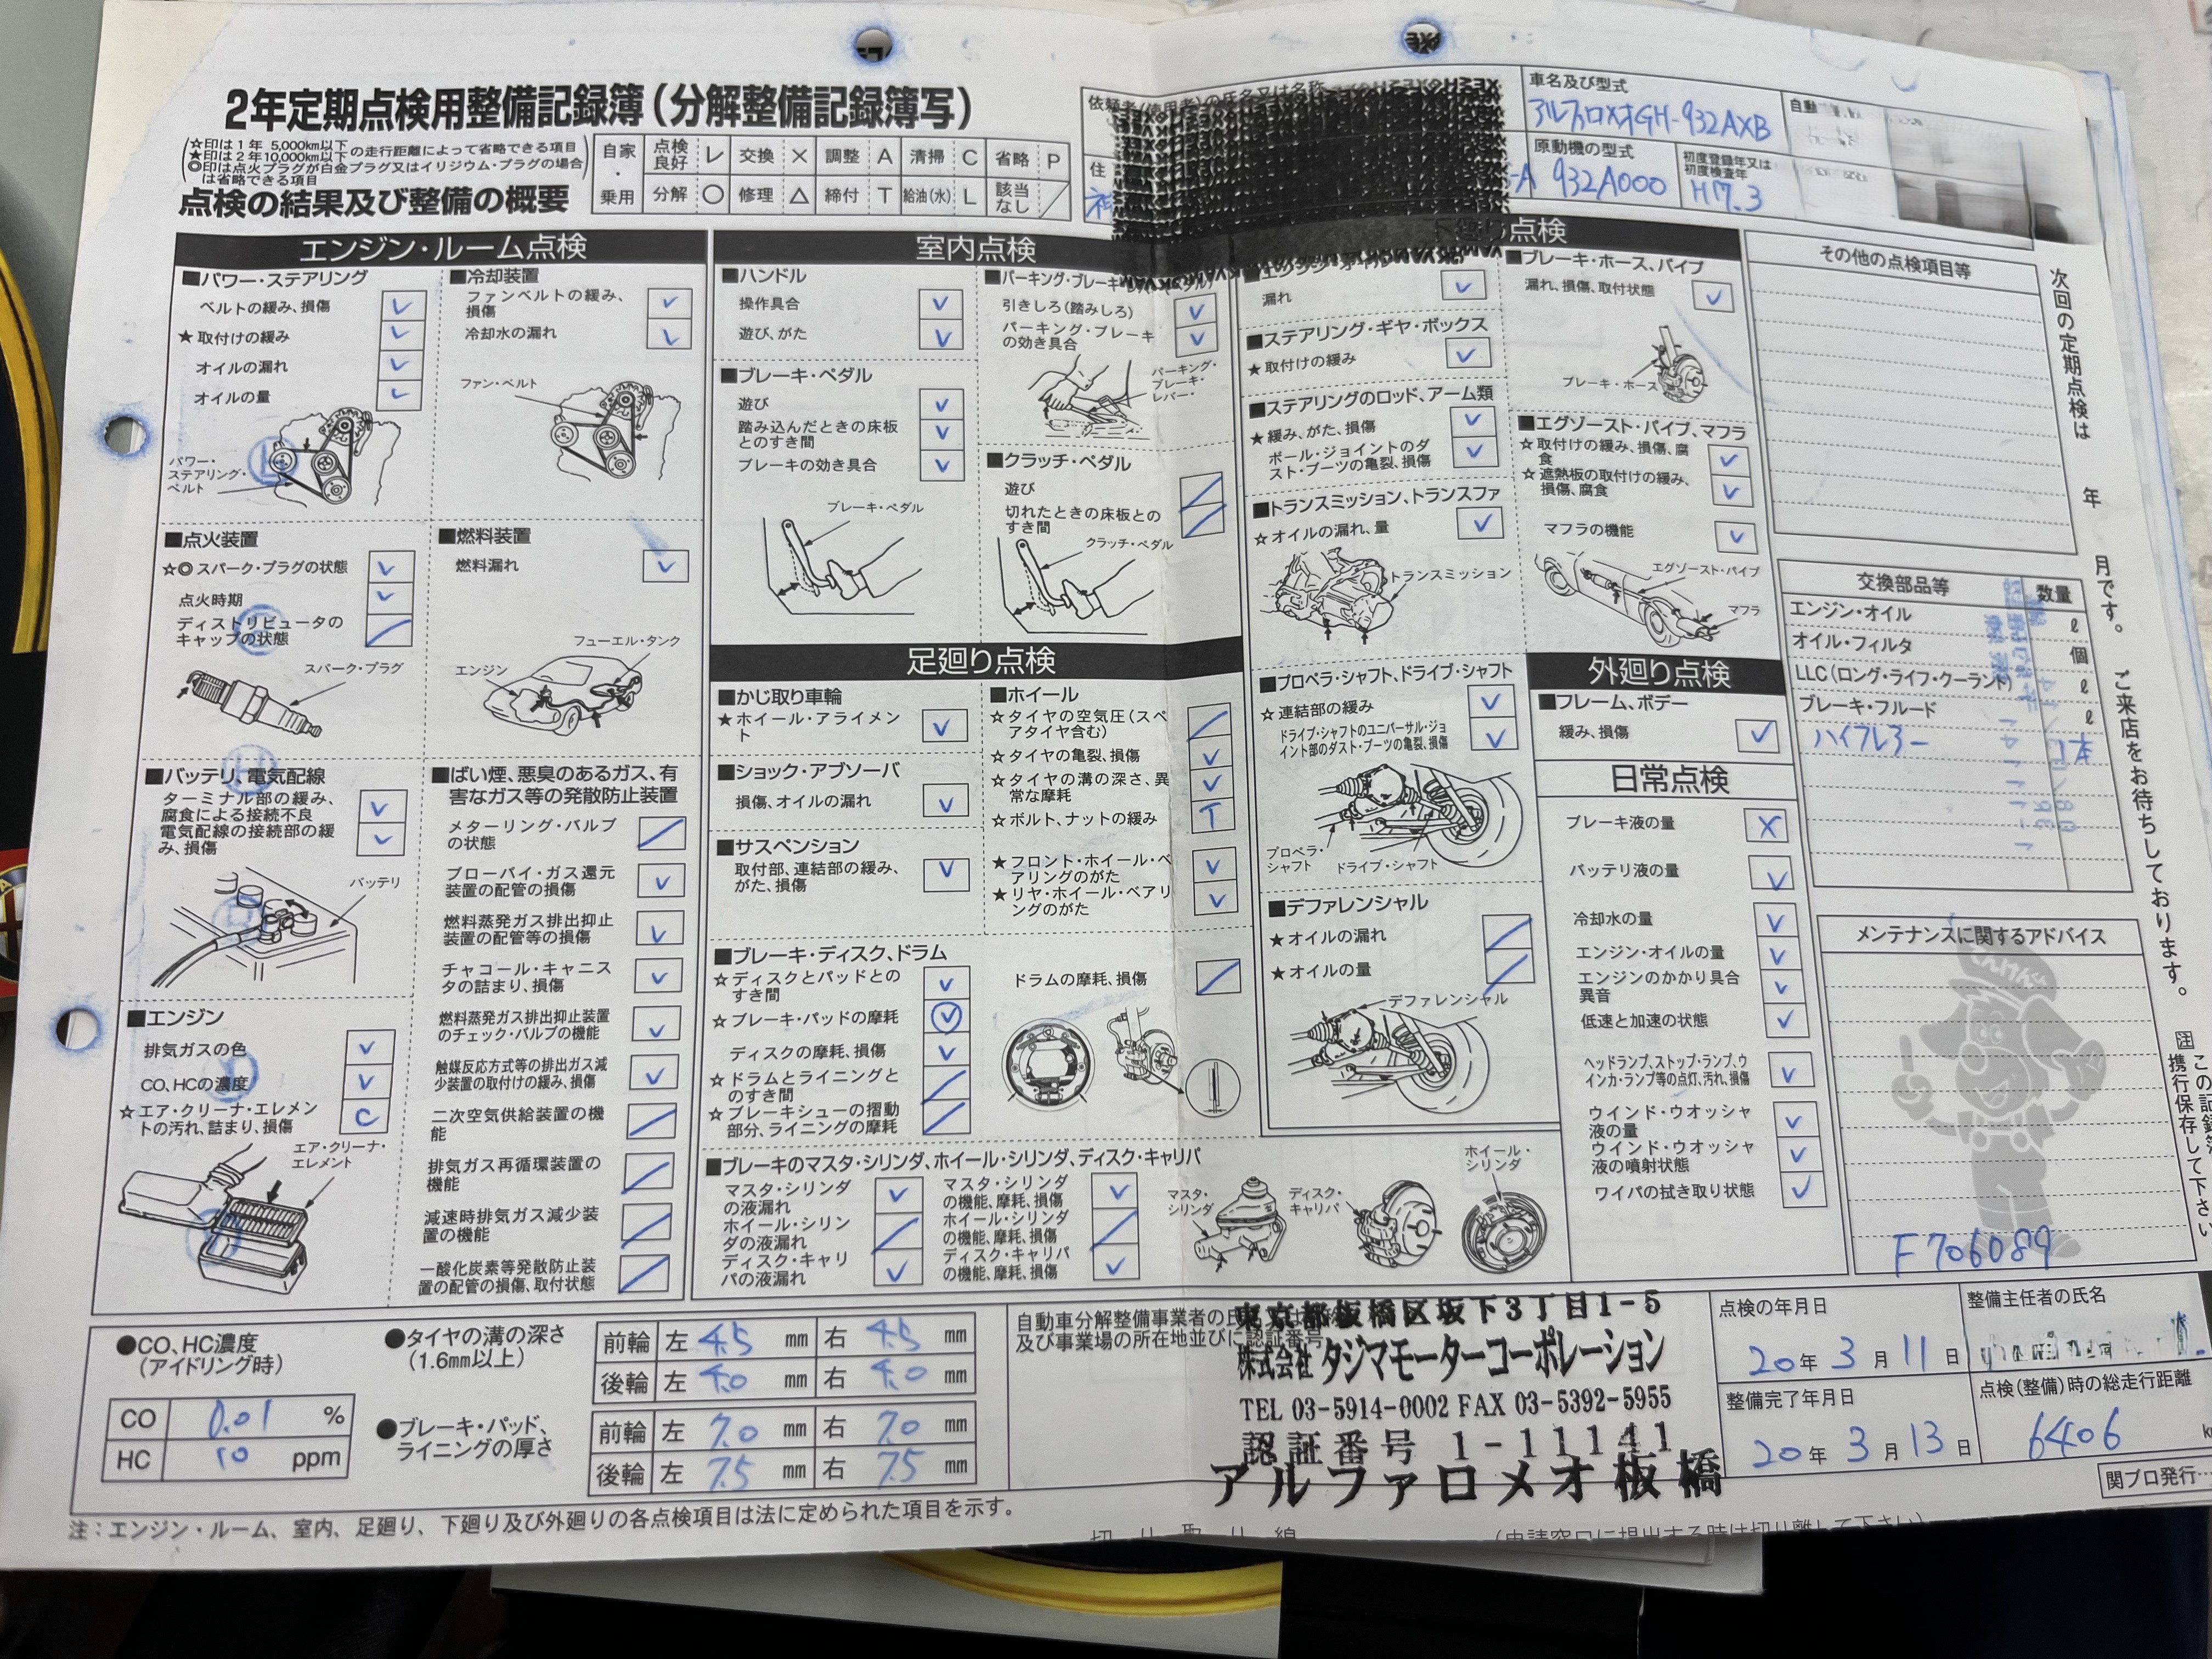 2年定期点検用整備記録簿(分解整備記録簿写)
☆印は1年 5,000km以下
★印は2年10,000km以下の走行距離によって省略できる項目
◎印は点火プラグが白金プラグ又はイリジウム・プラグの場合
は省略できる項目
点検の結果及び整備の概要
自家・乗用
点検良好 レ 交換 × 調整 A 清掃 C 省略 P
分解 ○ 修理 △ 締付 T 給油(水) L 該当なし /
依頼者(使用者)の氏名又は名称
住
車名及び型式
アルファロメオGH-932AXB
自動
原動機の型式
932A000
初度登録年又は
初度検査年
H17.3
エンジン・ルーム点検
■パワー・ステアリング
ベルトの緩み、損傷 レ
★取付けの緩み レ
オイルの漏れ レ
オイルの量 レ
パワー・
ステアリング・
ベルト
■冷却装置
ファンベルトの緩み、
損傷 レ
冷却水の漏れ レ
ファン・ベルト
■点火装置
☆◎スパーク・プラグの状態 レ
点火時期 レ
ディストリビュータの
キャップの状態 /
スパーク・プラグ
■燃料装置
燃料漏れ レ
フューエル・タンク
エンジン
■バッテリ、電気配線
ターミナル部の緩み、
腐食による接続不良 レ
電気配線の接続部の緩
み、損傷 レ
バッテリ
■ばい煙、悪臭のあるガス、有
害なガス等の発散防止装置
メターリング・バルブ
の状態 /
ブローバイ・ガス還元
装置の配管の損傷 レ
燃料蒸発ガス排出抑止
装置の配管等の損傷 レ
チャコール・キャニス
タの詰まり、損傷 レ
燃料蒸発ガス排出抑止装置
のチェック・バルブの機能 レ
触媒反応方式等の排出ガス減
少装置の取付けの緩み、損傷 レ
二次空気供給装置の機
能 /
排気ガス再循環装置の
機能 /
減速時排気ガス減少装
置の機能 /
一酸化炭素等発散防止装
置の配管の損傷、取付状態 /
■エンジン
排気ガスの色 レ
CO、HCの濃度 レ
☆エア・クリーナ・エレメン
トの汚れ、詰まり、損傷 C
エア・クリーナ・
エレメント
室内点検
■ハンドル
操作具合 レ
遊び、がた レ
■ブレーキ・ペダル
遊び レ
踏み込んだときの床板
とのすき間 レ
ブレーキの効き具合 レ
ブレーキ・ペダル
引きしろ(踏みしろ) レ
パーキング・ブレーキ
の効き具合 レ
パーキング・
ブレーキ・
レバー・
■クラッチ・ペダル
遊び /
切れたときの床板との
すき間 /
クラッチ・ペダル
足廻り点検
■かじ取り車輪
★ホイール・アライメン
ト レ
■ショック・アブソーバ
損傷、オイルの漏れ レ
■サスペンション
取付部、連結部の緩み、
がた、損傷 レ
■ホイール
☆タイヤの空気圧(スペ
アタイヤ含む) /
☆タイヤの亀裂、損傷 レ
☆タイヤの溝の深さ、異
常な摩耗 レ
☆ボルト、ナットの緩み T
★フロント・ホイール・ベ
アリングのがた レ
★リヤ・ホイール・ベアリ
ングのがた レ
■ブレーキ・ディスク、ドラム
☆ディスクとパッドとの
すき間 レ
☆ブレーキ・パッドの摩耗 レ
ディスクの摩耗、損傷 レ
☆ドラムとライニングと
のすき間 /
☆ブレーキシューの摺動
部分、ライニングの摩耗 /
ドラムの摩耗、損傷 /
■ブレーキのマスタ・シリンダ、ホイール・シリンダ、ディスク・キャリパ
マスタ・シリンダ
の液漏れ レ
ホイール・シリン
ダの液漏れ /
ディスク・キャリ
パの液漏れ レ
マスタ・シリンダ
の機能、摩耗、損傷 レ
ホイール・シリンダ
の機能、摩耗、損傷 /
ディスク・キャリパ
の機能、摩耗、損傷 レ
マスタ・
シリンダ
ディスク・
キャリパ
ホイール・
シリンダ
点検
漏れ レ
■ステアリング・ギヤ・ボックス
★取付けの緩み レ
■ステアリングのロッド、アーム類
★緩み、がた、損傷 レ
ボール・ジョイントのダ
スト・ブーツの亀裂、損傷 レ
■トランスミッション、トランスファ
☆オイルの漏れ、量 レ
トランスミッション
■プロペラ・シャフト、ドライブ・シャフト
☆連結部の緩み レ
ドライブ・シャフトのユニバーサル・ジョ
イント部のダスト・ブーツの亀裂、損傷 レ
プロペラ・
シャフト
ドライブ・シャフト
■デファレンシャル
★オイルの漏れ /
★オイルの量 /
デファレンシャル
■ブレーキ・ホース、パイプ
漏れ、損傷、取付状態 レ
ブレーキ・ホース
■エグゾースト・パイプ、マフラ
☆取付けの緩み、損傷、腐
食 レ
☆遮熱板の取付けの緩み、
損傷、腐食 レ
マフラの機能 レ
エグゾースト・パイプ
マフラ
外廻り点検
■フレーム、ボデー
緩み、損傷 レ
日常点検
ブレーキ液の量 ×
バッテリ液の量 レ
冷却水の量 レ
エンジン・オイルの量 レ
エンジンのかかり具合
異音 レ
低速と加速の状態 レ
ヘッドランプ、ストップ・ランプ、ウ
インカ・ランプ等の点灯、汚れ、損傷 レ
ウインド・ウオッシャ
液の量 レ
ウインド・ウオッシャ
液の噴射状態 レ
ワイパの拭き取り状態 レ
その他の点検項目等
交換部品等 数量
エンジン・オイル ℓ
オイル・フィルタ 個
LLC(ロング・ライフ・クーラント) ℓ
ブレーキ・フルード ℓ
1本
メンテナンスに関するアドバイス
F706089
次回の定期点検は 年 月です。 ご来店をお待ちしております。
注 この記録簿
携行保存して下さい
●CO、HC濃度
(アイドリング時)
CO 0.01 %
HC 10 ppm
●タイヤの溝の深さ
(1.6mm以上)
前輪 左 4.5 mm 右 4.5 mm
後輪 左 4.0 mm 右 4.0 mm
●ブレーキ・パッド、
ライニングの厚さ
前輪 左 7.0 mm 右 7.0 mm
後輪 左 7.5 mm 右 7.5 mm
自動車分解整備事業者の氏
及び事業場の所在地並びに認証番号
東京都板橋区坂下3丁目1-5
株式会社タジマモーターコーポレーション
TEL 03-5914-0002 FAX 03-5392-5955
認証番号 1-11141
アルファロメオ板橋
点検の年月日
20年 3月 11日
整備主任者の氏名
整備完了年月日
20年 3月 13日
点検(整備)時の総走行距離
6406
関ブロ発行
注:エンジン・ルーム、室内、足廻り、下廻り及び外廻りの各点検項目は法に定められた項目を示す。
切り取り線
(申請窓口に提出する時は切り離して下さい)